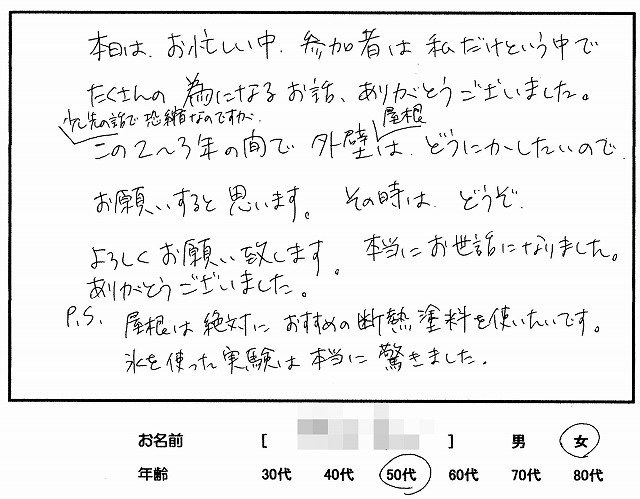 本日は、お忙しい中、参加者は私だけという中で
たくさんの為になるお話、ありがとうございました。
少し先の話で恐縮なのですが、
屋根
この2~3年の間で外壁は、どうにかしたいので
お願いすると思います。その時は、どうぞ
よろしくお願い致します。本当にお世話になりました。
ありがとうございました。
P.S. 屋根は絶対におすすめの断熱塗料を使いたいです。
氷を使った実験は本当に驚きました。
お名前 [ ] 男 女
年齢 30代 40代 50代 60代 70代 80代